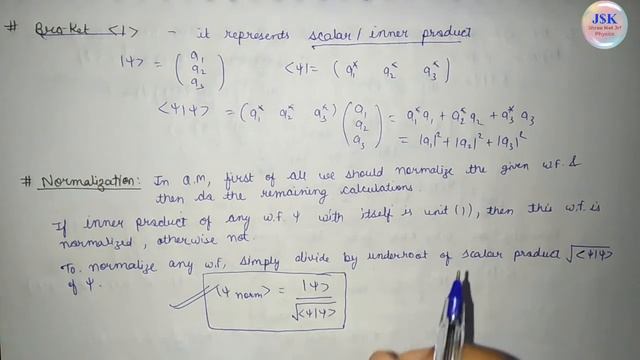 JSK
Shree Net Jrf
Physics
# Bra-Ket < | > - it represents scalar / inner product
|ψ> = ( a₁ a₂ a₃ ) <ψ| = ( a₁* a₂* a₃* )
<ψ|ψ> = ( a₁* a₂* a₃* ) ( a₁ a₂ a₃ ) = a₁* a₁ + a₂* a₂ + a₃* a₃
= |a₁|² + |a₂|² + |a₃|²
# Normalization: In Q.M, first of all we should normalize the given w.f. &
then do the remaining calculations.
If inner product of any w.f. ψ with itself is unit (1), then this w.f. is
normalized, otherwise not.
To normalize any w.f, simply divide by underroot of scalar product √<ψ|ψ>
of ψ.
|ψ norm> = |ψ> / √<ψ|ψ>